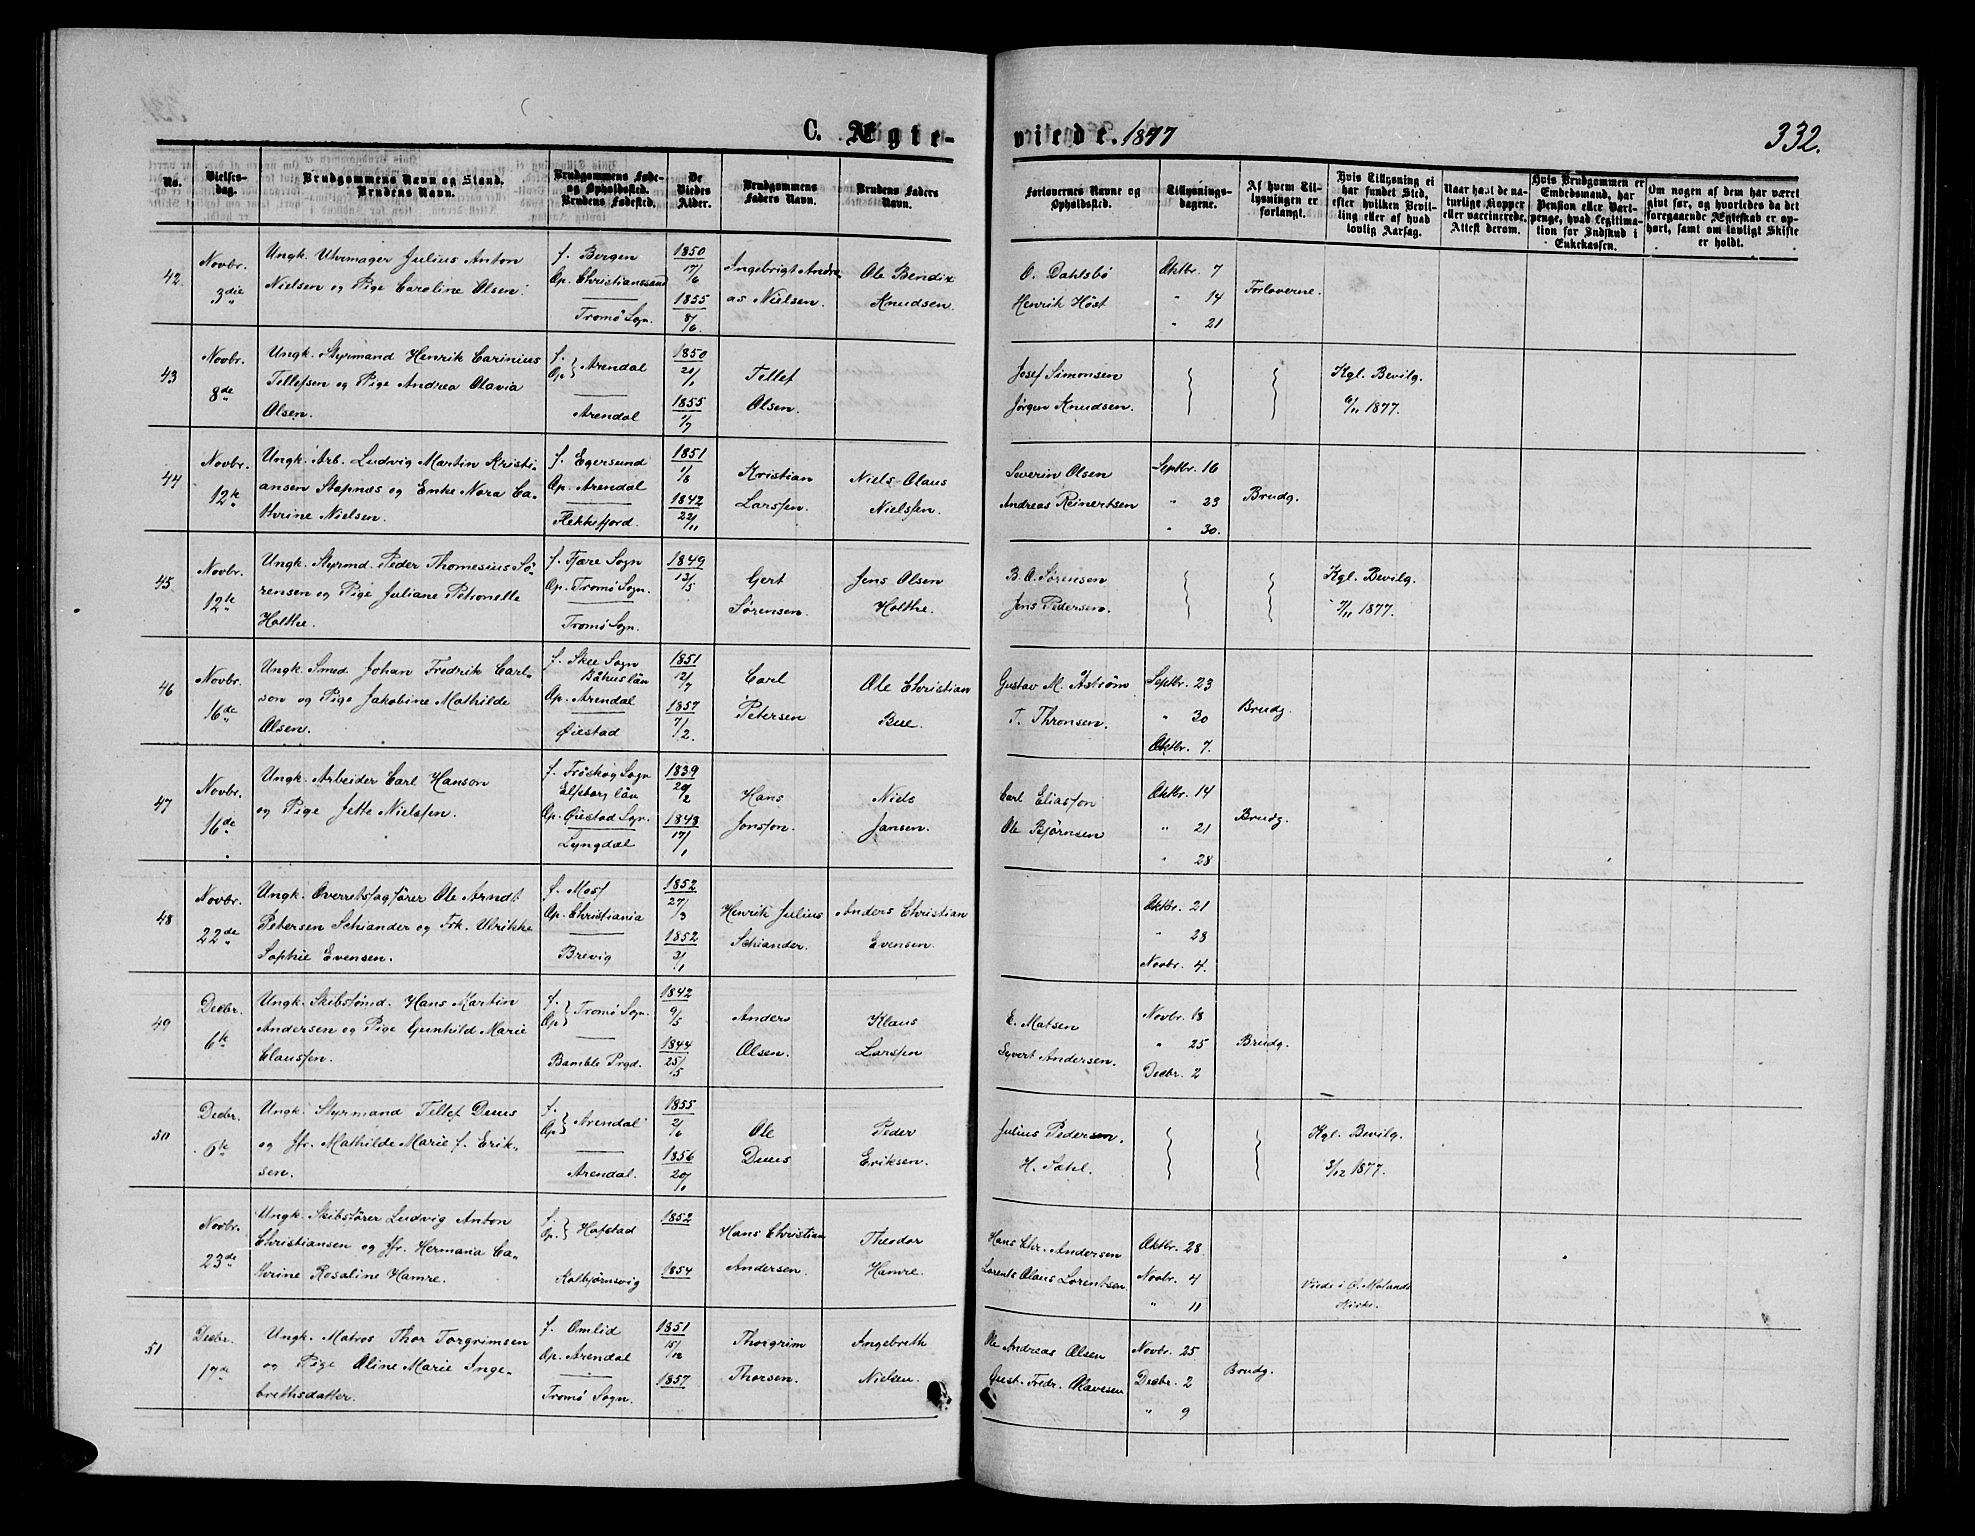 C. Ægteviede. 1877
332.
No.
Vielses-
dag.
Brudgommens Navn og Stand.
Brudens Navn.
Brudgommens Føde-
og Opholdssted.
Brudens Fødested.
De
Viedes
Alder.
Brudgommens
Faders Navn.
Brudens Faders
Navn.
Forlovernes Navne og
Opholdssted.
Tillysnings-
dagene.
Af hvem Til-
lysningen er
forlangt.
Hvis Tillysning ei
har fundet Sted,
efter hvilken Bevil-
ling eller af hvad
lovlig Aarsag.
Naar havt de na-
turlige Kopper
eller vaccinerede.
Attest derom.
Hvis Brudgommen er
Embedsmand, har
Pension eller Vart-
penge, hvad Legitima-
tion for Indskud i
Enkekassen.
Om nogen af dem har været
givt før, og hvorledes da det
foregaaende Ægteskab er op-
hørt, samt om lovligt Skifte
er holdt.
42
Novbr.
3die
Ungk. Uhrmager Julius Anton
Nielsen og Pige Caroline Olsen.
f. Bergen
Op. Christianssand
Tromø Sogn.
1850
17/6
1855
8/6.
Ingebrigt Andre
as Nielsen.
Ole Bendix
Knudsen.
O. Dahlsbö
Henrik Höst
Oktbr. 7
" 14
" 21
Forloverne.
43
Novbr.
8de
Ungk. Styrmand Henrik Carinius
Tellefsen og Pige Andrea Olavia
Olsen.
f.
Op } Arendal
Arendal
1850
21/1
1855
1/7
Tellef
Olsen.
Josef Simonsen
Jörgen Knudsen.
Kgl. Bevilg.
6/11 1877.
44
Novbr.
12te
Ungk. Arb. Ludvig Martin Kristi-
ansen Stapnæs og Enke Nora Ca-
thrine Nielsen.
f. Egersund
Op. Arendal
Flekkefjord.
1851
1/8
1842
22/11
Kristian
Larssen.
Niels Olaus
Nielssen.
Severin Olsen
Andreas Reinertsen
Septbr. 16
" 23
" 30.
Brudg.
45
Novbr.
12te
Ungk. Styrmd. Peder Thomesius Sö-
rensen og Pige Juliane Petronelle
Holthe.
f. Fjære Sogn
Op. Tromö Sogn.
Tromö Sogn.
1849
12/5
Gert
Sörensen.
Jens Olsen
Holthe.
B. O. Sörensen
Jens Pedersen.
Kgl. Bevilg.
7/11 1877.
46
Novbr.
16de
Ungk. Smed Johan Fredrik Carl-
son og Pige Jakobine Mathilde
Olsen.
f. Skee Sogn
Båhuslän
Op. Arendal
Øiestad
1851
12/7
1857
7/2.
Carl
Petersen
Ole Christian
Bue.
Gustav M. Åström
T. Thronsen.
Septbr. 23
" 30
Oktbr. 7.
Brudg.
47
Novbr.
16de
Ungk. Arbeider Carl Hanson
og Pige Jette Nielssen.
f. Fröskog Sogn
Elfsborg län
Op. Øiestad Sogn.
Lyngdal
1839
20/2
1843
17/1
Hans
Jonsson.
Niels
Jansen.
Carl Eliasson
Ole Björnsen
Oktbr. 14
" 21
" 28
Brudg.
48
Novbr.
22de
Ungk. Overretssagförer Ole Arndt
Petersen Schiander og Frk. Ulrikke
Sophie Evensen.
f. Moss
Op. Christiania
Brevig
1852
27/3
1852
31/1
Henrik Julius
Schiander.
Anders Christian
Evensen.
Oktbr. 21
" 28
Novbr. 4.
49
Decbr.
6te
Ungk. Skibstömd. Hans Martin
Andersen og Pige Gunhild Marie
Claussen.
f.
Op } Tromö Sogn.
Bamble Prgd.
1842
9/5
1844
25/5
Anders
Olsen.
Klaus
Larssen
E. Matsen
Syvert Andersen.
Novbr. 18
" 25
Decbr. 2
Brudg.
50
Decbr.
6te
Ungk. Styrmand Tellef Duus
og Jfr. Mathilde Marie f. Erik-
sen.
f.
Op } Arendal
Arendal.
1855
2/6
1856
Ole
Duus
Peder
Eriksen.
Julius Pedersen.
H. Dahl.
Kgl. Bevilg.
3/12 1877.
Novbr.
23de
Ungk. Skibsförer Ludvig Anton
Christiansen og Jfr. Hermania Ca-
thrine Rosaline Hamre.
f.
Op. } Hafstad
Kolbjörnsvig
1852
1854
Hans Christian
Andersen.
Theodor
Hamre.
Hans Chr. Andersen
Lorents Olaus Lorentsen
Oktbr. 28
Novbr. 4
" 11
Viede i Ø. Molands
Kirke.
51
Decbr.
17de
Ungk. Matros Thor Torgrimsen
og Pige Oline Marie Inge-
brethsdatter.
f. Omlid
Op. Arendal
Tromö Sogn.
1851
15/12
1857
Thorgrim
Thorsen.
Ingebreth
Nielsen.
Ole Andreas Olsen
Gust. Fredr. Olavesen
Novbr. 25
Decbr. 2
" 9
Brudg.